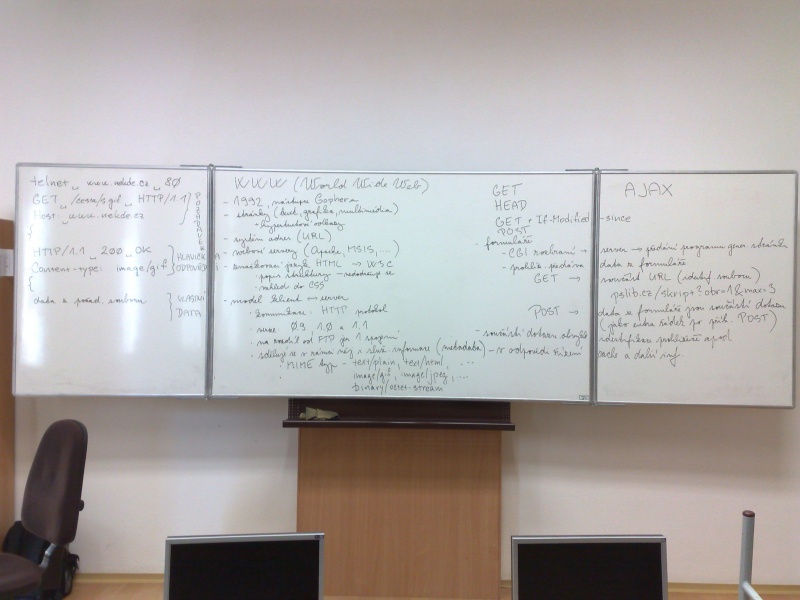 telnet ␣ www.nekde.cz ␣ 80
GET ␣ /cesta/s.gif ␣ HTTP/1.1
Host: ␣ www.nekde.cz
{
POŽADAVEK
HTTP/1.1 ␣ 200 ␣ OK
Content-type: image/gif
HLAVIČKA ODPOVĚDI
{
data z požad. souboru
VLASTNÍ DATA
WWW (World Wide Web)
- 1992, nástupce Gophera
- stránky (text, grafika, multimédia)
- hypertextové odkazy
- systém adres (URL)
- webové servery (Apache, MSIS, ...)
- značkovací jazyk HTML → W3C
· popis struktury - nedodržuje se
· vzhled do CSS
- model klient ↔ server
· komunikace: HTTP protokol
· verze: 0.9, 1.0 a 1.1
· na rozdíl od FTP jen 1 spojení
· MIME typ - text/plain, text/html, ...
image/gif, image/jpeg, ...
binary/octet-stream
GET
HEAD
GET + If-Modified-since
POST
- formuláře
- CGI rozhraní → server → předání programu
- prohlíž. předává data z formuláře
GET → součást URL
pslib.cz/skript?otr=1&max=3
POST → data z formuláře jsou součástí dotazu
(jako extra řádek po POST)
identifikace prohlížeče apod.
- v odpovědi
cache a další inf.
AJAX